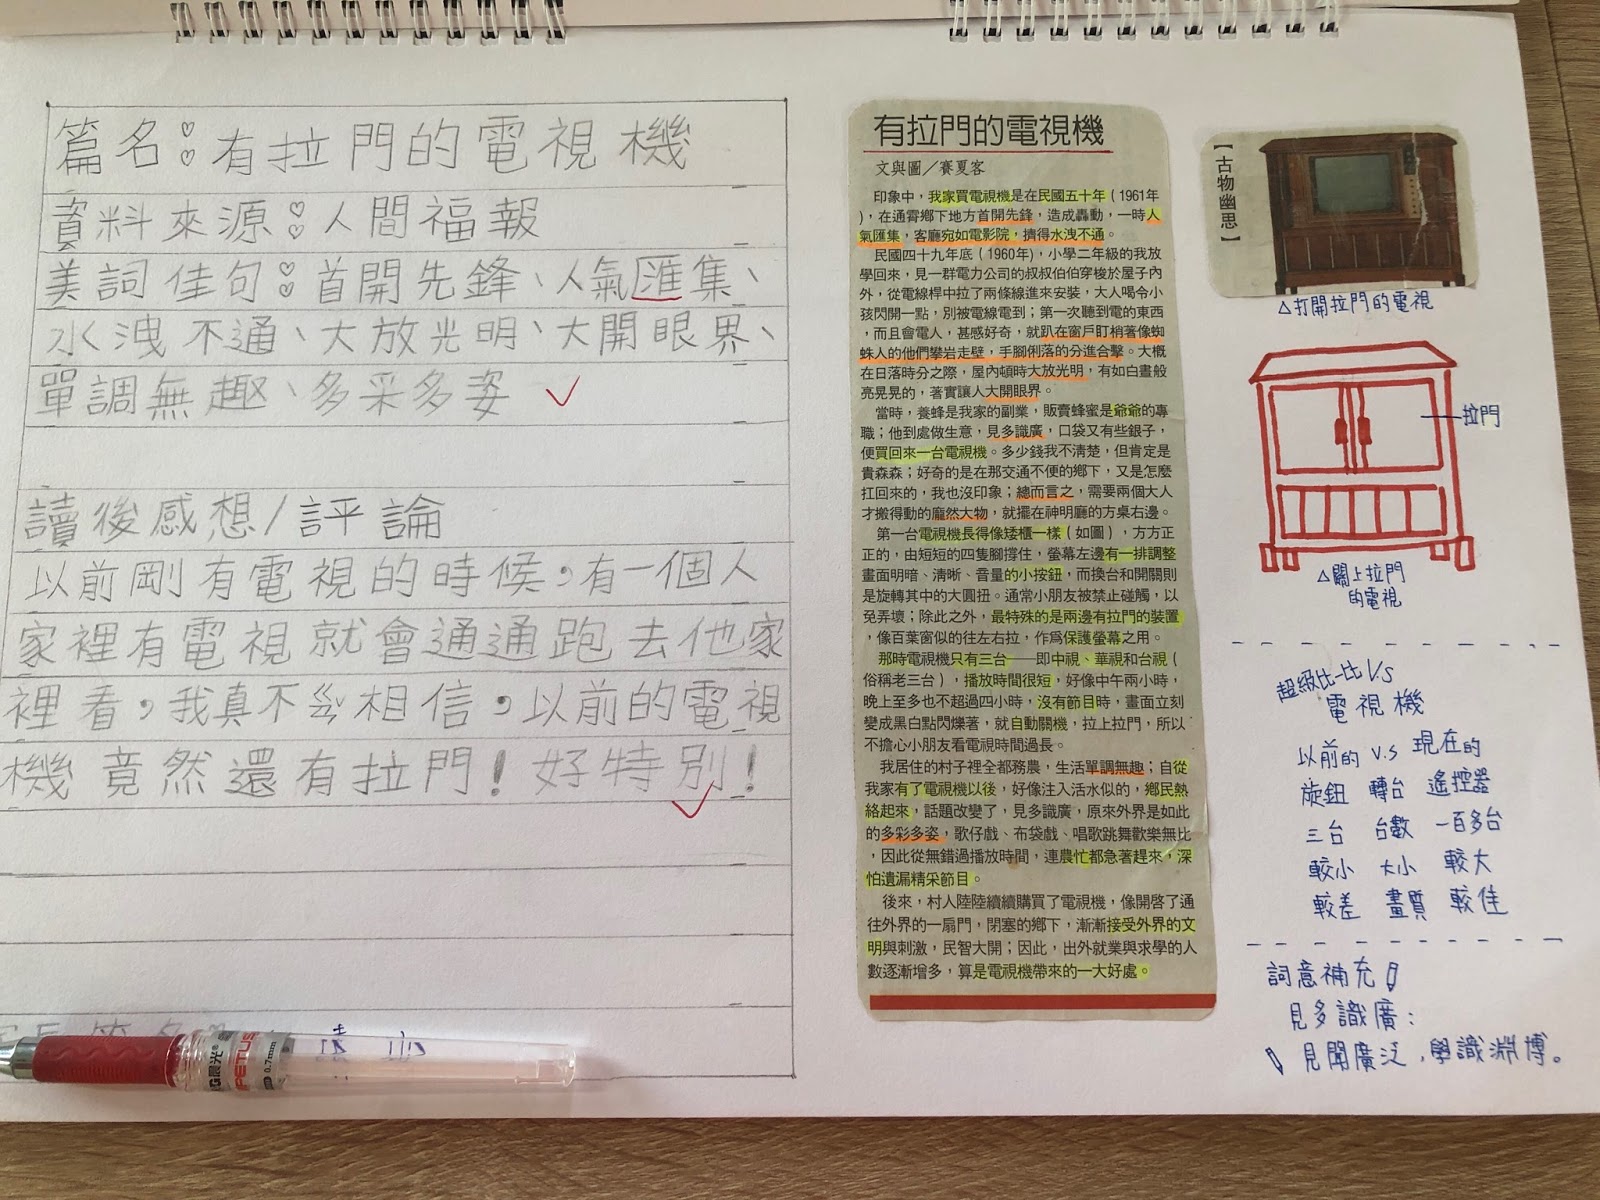 篇名:有拉門的電視機
資料來源:人間福報
美詞佳句:首開先鋒、人氣匯集、
水洩不通、大放光明、大開眼界、
單調無趣、多采多姿
讀後感想/評論
以前剛有電視的時候,有一個人
家裡有電視就會通通跑去他家
裡看,我真不敢相信,以前的電視
機竟然還有拉門!好特別!
有拉門的電視機
文與圖/賽夏客
印象中,我家買電視機是在民國五十年(1961年
),在通霄鄉下地方首開先鋒,造成轟動,一時人
氣匯集,客廳宛如電影院,擠得水洩不通。
民國四十九年底(1960年),小學二年級的我放
學回來,見一群電力公司的叔叔伯伯穿梭於屋子內
外,從電線桿中拉了兩條線進來安裝,大人喝令小
孩閃開一點,別被電線電到;第一次聽到電的東西
,而且會電人,甚感好奇,就趴在窗戶盯梢著像蜘
蛛人的他們攀岩走壁,手腳俐落的分進合擊。大概
在日落時分之際,屋內頓時大放光明,有如白晝般
亮晃晃的,著實讓人大開眼界。
當時,養蜂是我家的副業,販賣蜂蜜是爺爺的專
職;他到處做生意,見多識廣,口袋又有些銀子,
便買回來一台電視機。多少錢我不清楚,但肯定是
貴森森;好奇的是在那交通不便的鄉下,又是怎麼
扛回來的,我也沒印象;總而言之,需要兩個大人
才搬得動的龐然大物,就擺在神明廳的方桌右邊。
第一台電視機長得像矮櫃一樣(如圖),方方正
正的,由短短的四隻腳撐住,螢幕左邊有一排調整
畫面明暗、清晰、音量的小按鈕,而換台和開關則
是旋轉其中的大圓扭。通常小朋友被禁止碰觸,以
免弄壞;除此之外,最特殊的是兩邊有拉門的裝置
,像百葉窗似的往左右拉,作為保護螢幕之用。
那時電視機只有三台——即中視、華視和台視(
俗稱老三台),播放時間很短,好像中午兩小時,
晚上至多也不超過四小時,沒有節目時,畫面立刻
變成黑白點閃爍著,就自動關機,拉上拉門,所以
不擔心小朋友看電視時間過長。
我居住的村子裡全都務農,生活單調無趣;自從
我家有了電視機以後,好像注入活水似的,鄉民熱
絡起來,話題改變了,見多識廣,原來外界是如此
的多彩多姿,歌仔戲、布袋戲、唱歌跳舞歡樂無比
,因此從無錯過播放時間,連農忙都急著趕來,深
怕遺漏精采節目。
後來,村人陸陸續續購買了電視機,像開啓了通
往外界的一扇門,閉塞的鄉下,漸漸接受外界的文
明與刺激,民智大開;因此,出外就業與求學的人
數逐漸增多,算是電視機帶來的一大好處。
【古物幽思】
△打開拉門的電視
拉門
△關上拉門
的電視
超級比一比VS
電視機
以前的 V.S 現在的
旋鈕 轉台 遙控器
三台 台數 一百多台
較小 大小 較大
較差 畫質 較佳
詞意補充
見多識廣:
見聞廣泛,學識淵博。
晨光
0.7mm